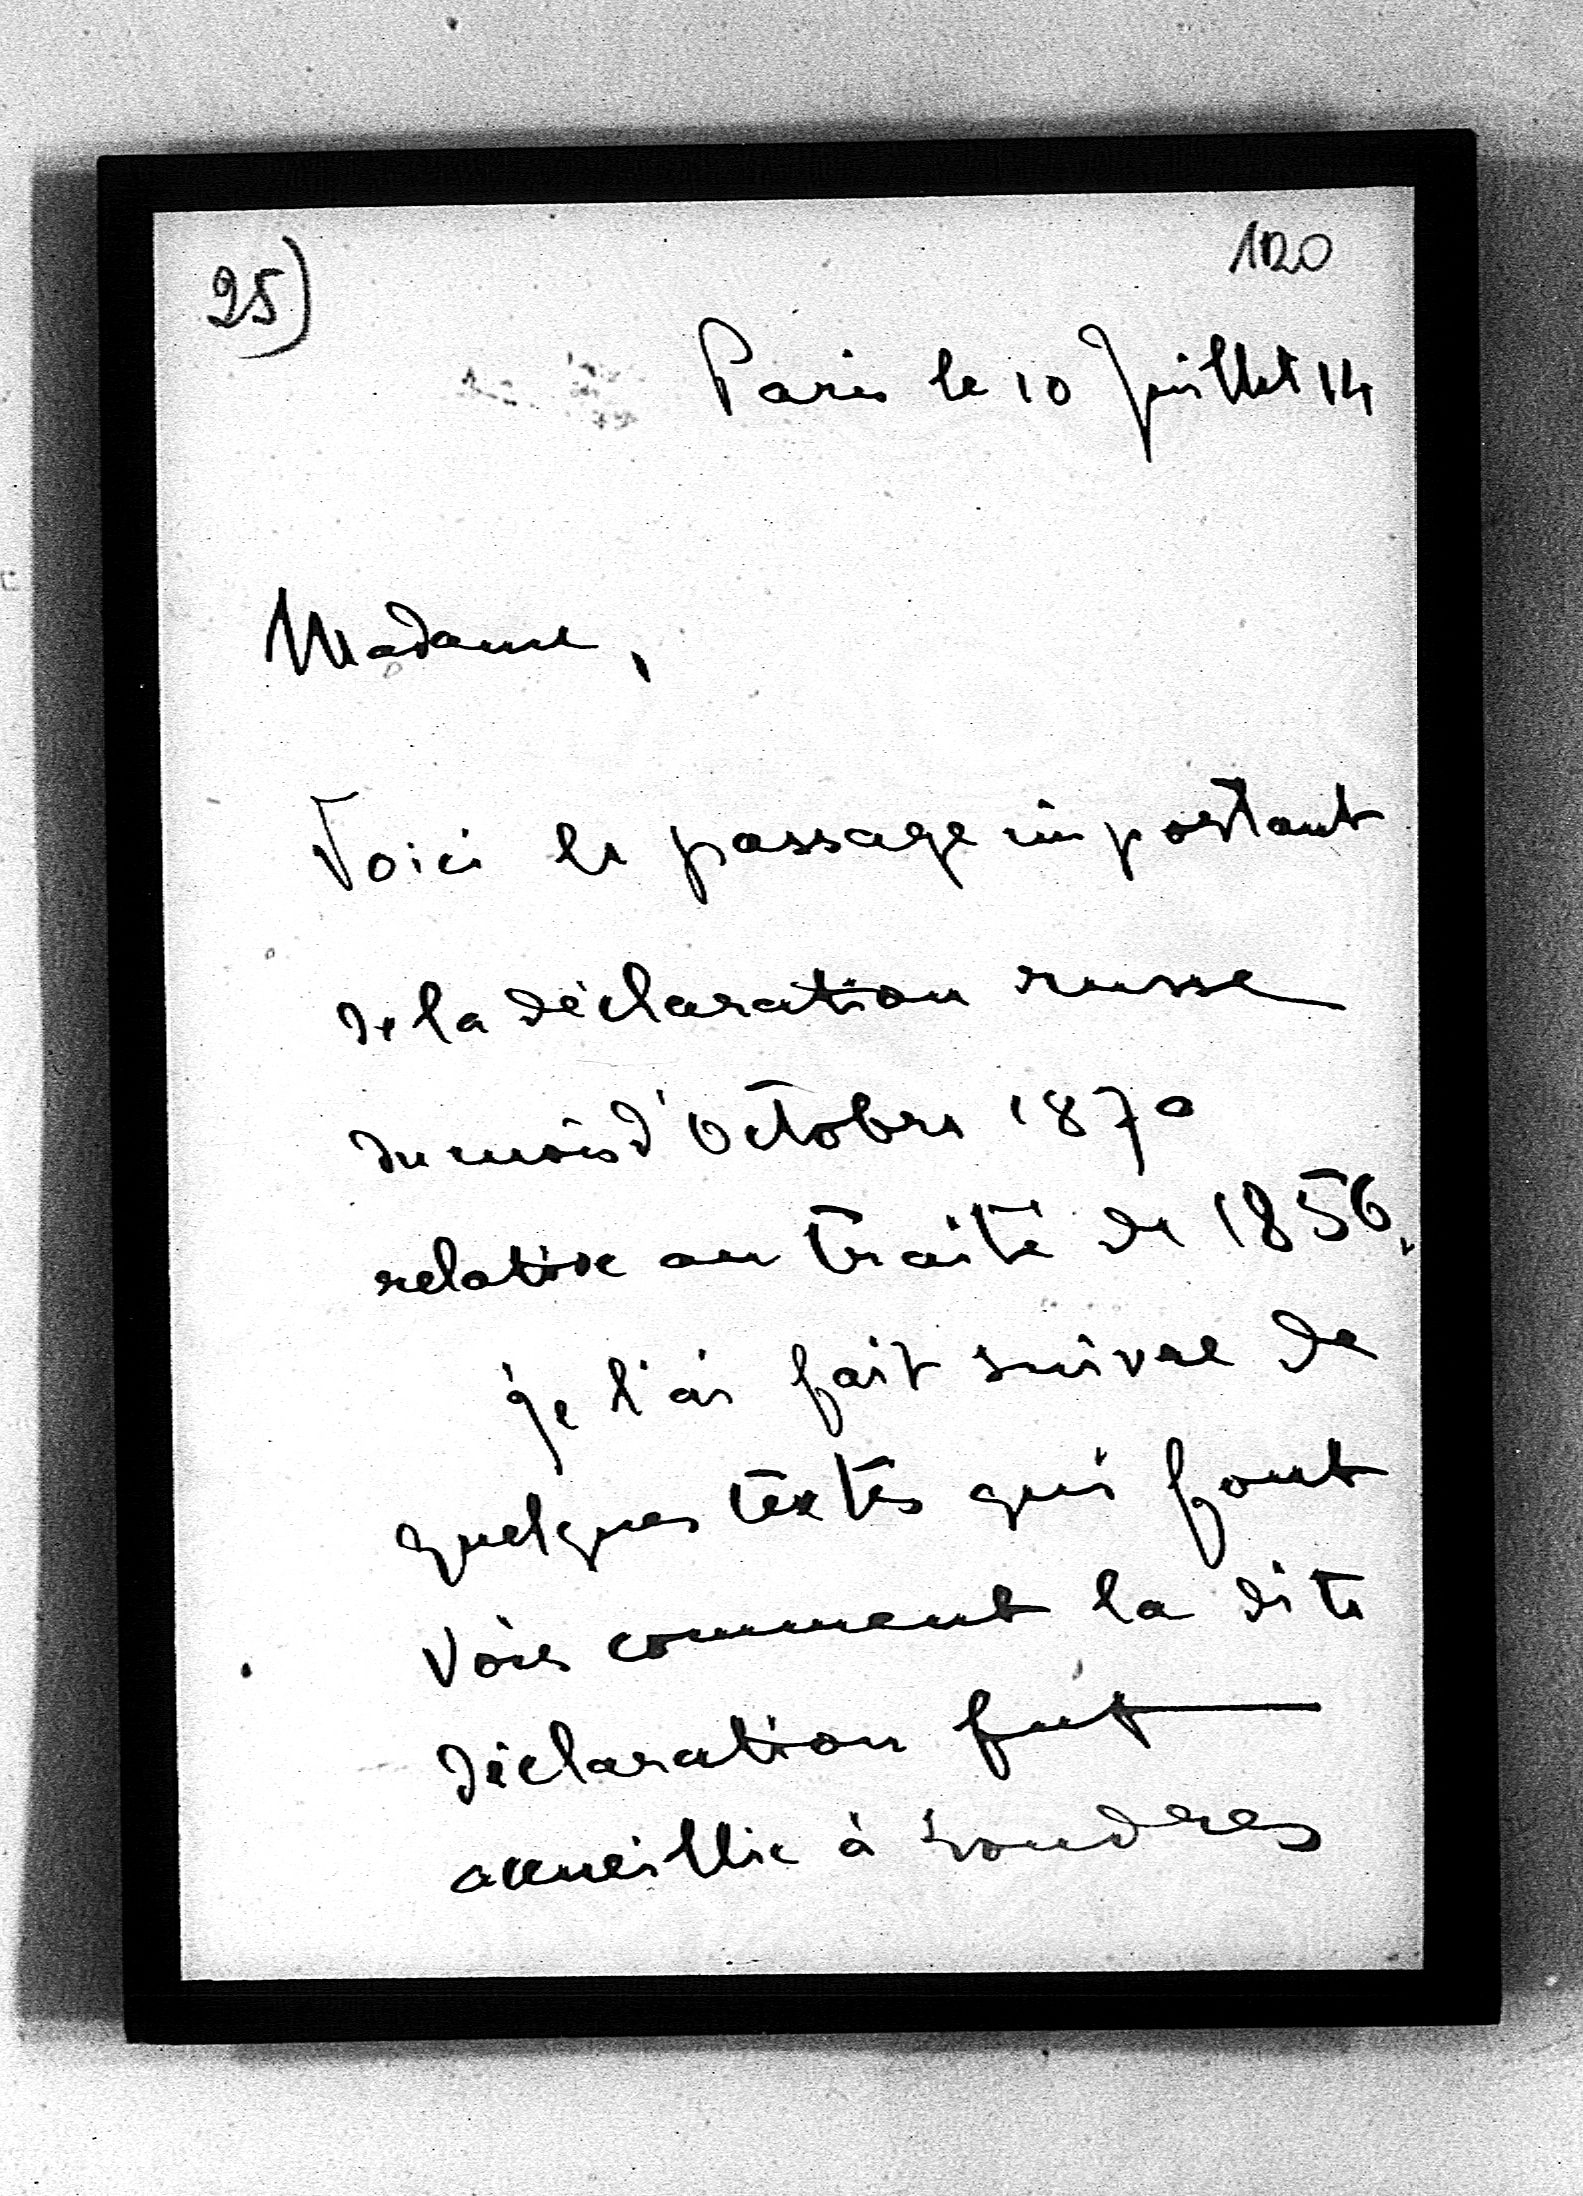 25)
120
Paris le 10 Juillet 14
Madame,
Voici le passage important
de la déclaration russe
du mois d'Octobre 1870
relative au traité de 1856.
je l'ai fait suivre de
quelques textes qui font
voir comment la dite
déclaration fut
accueillie à Londres